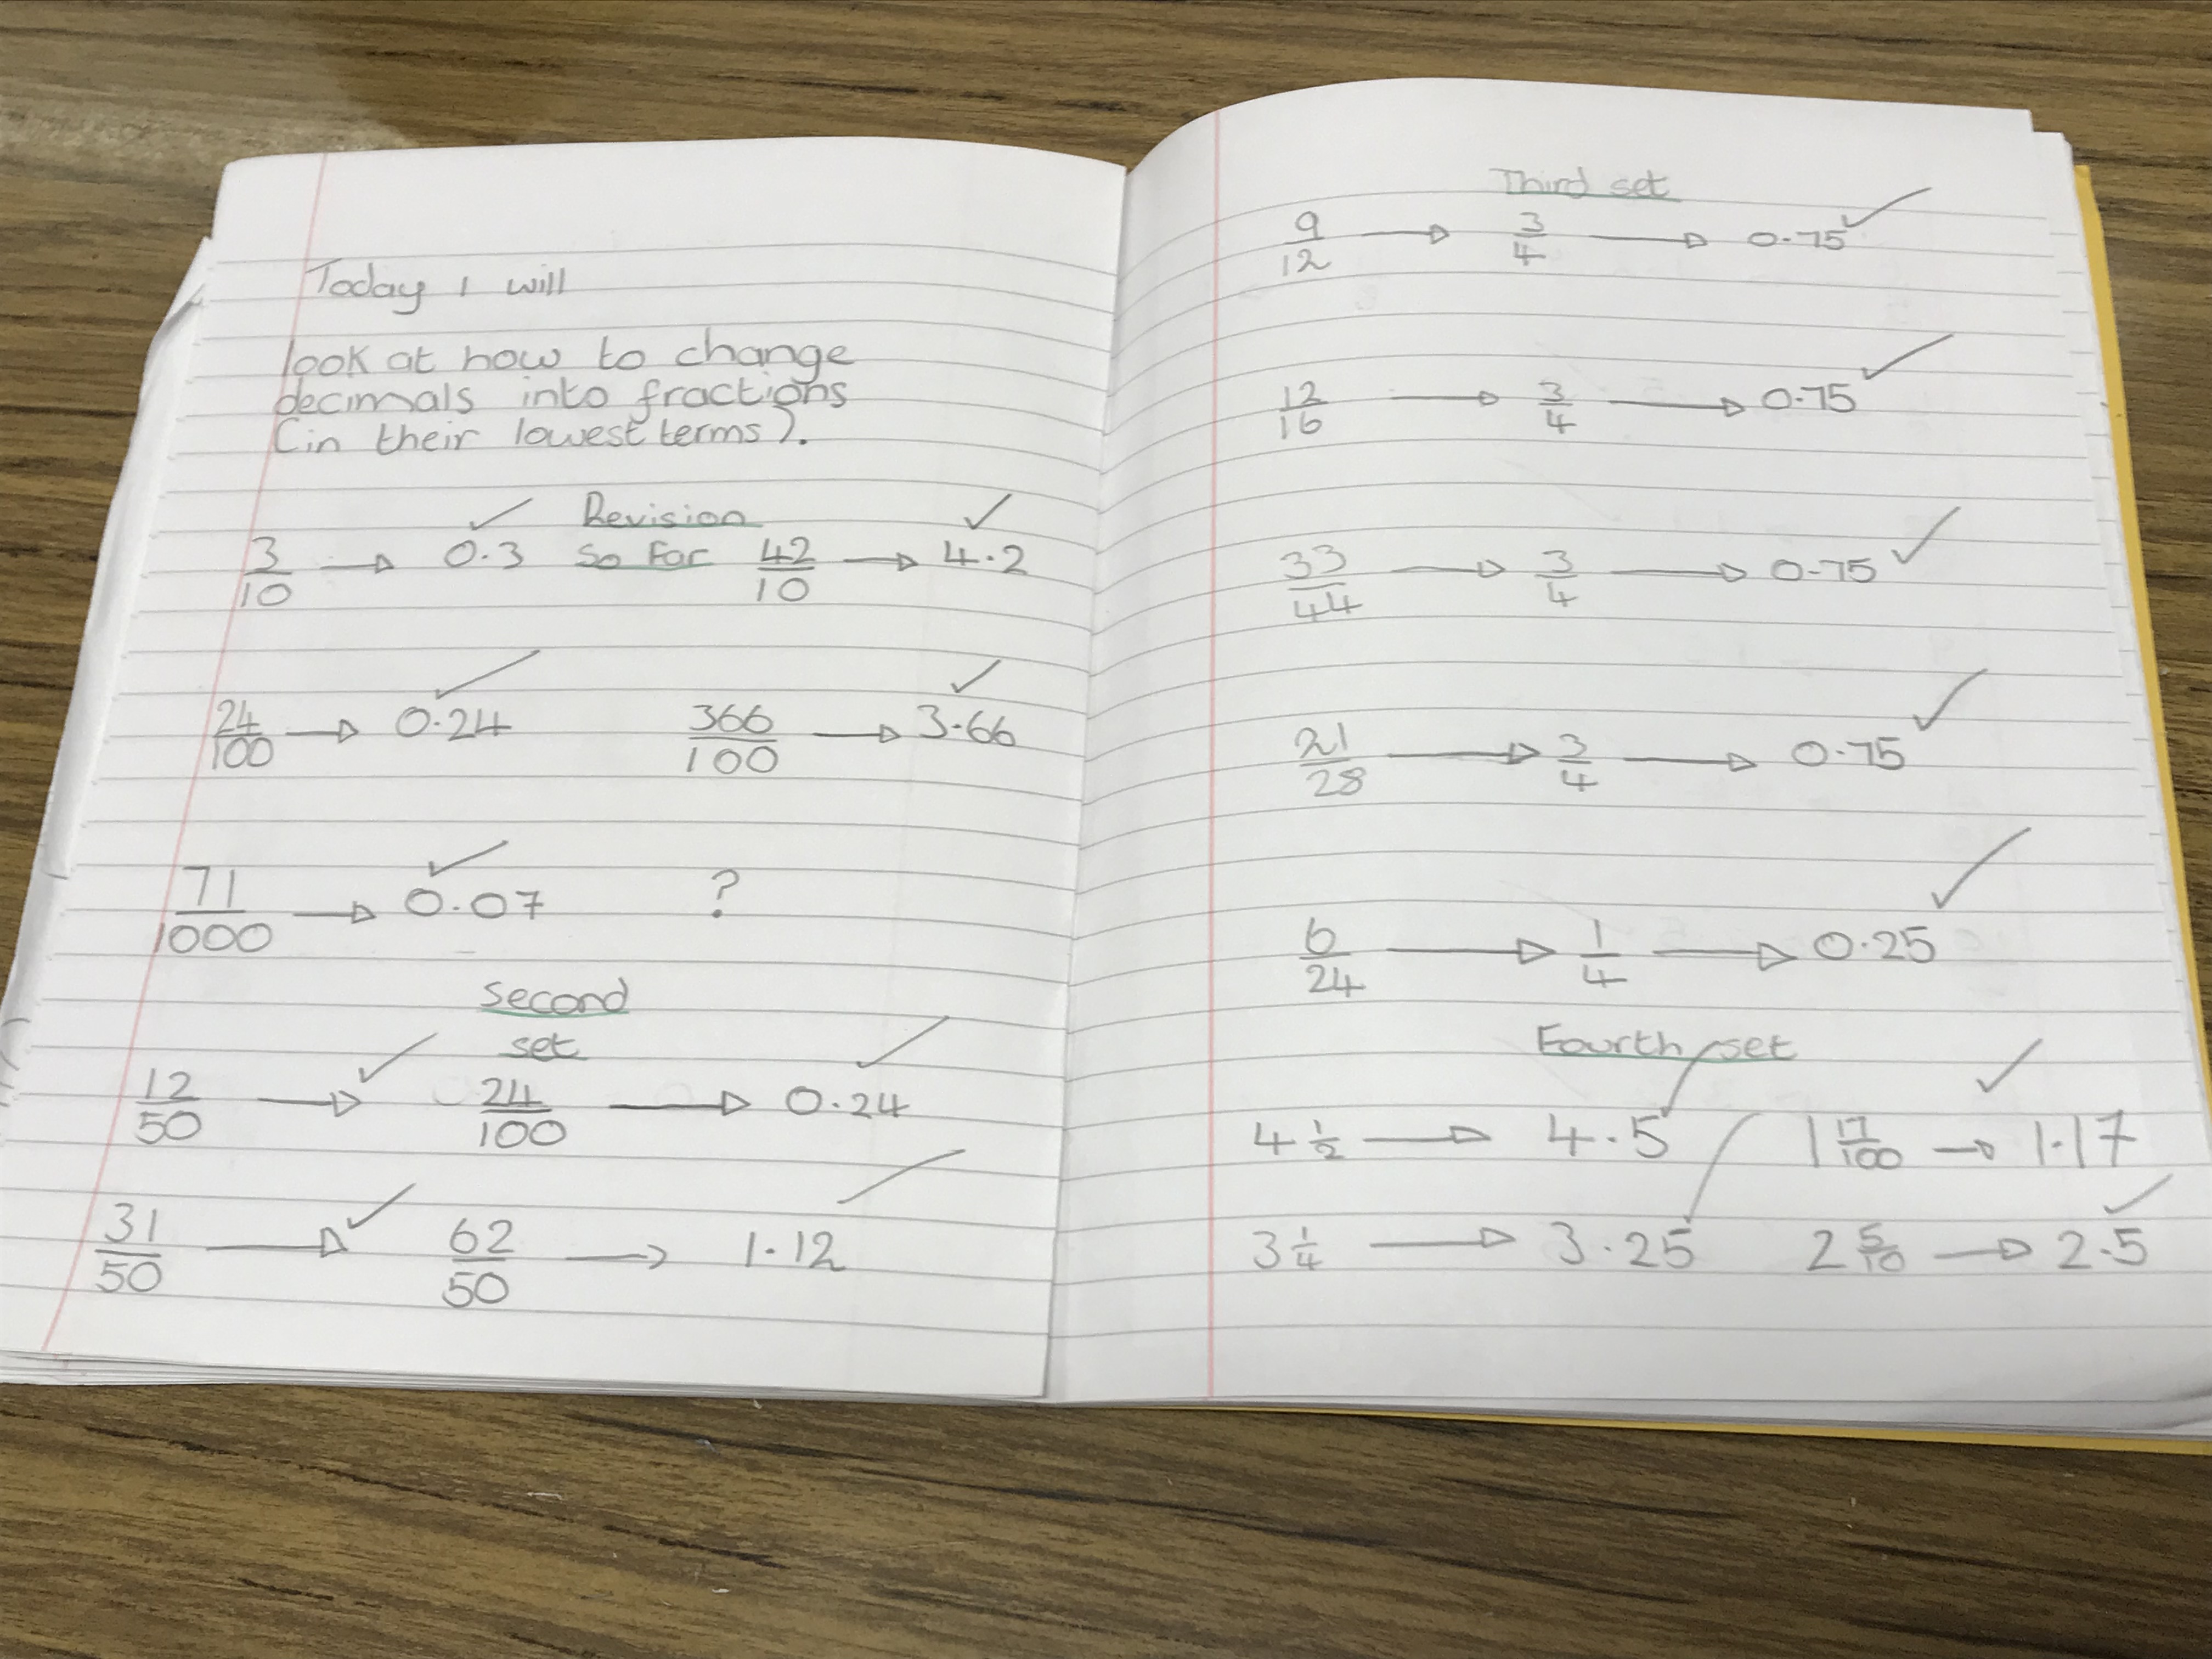 Today I will
look at how to change
decimals into fractions
(in their lowest terms).
Revision
So Far
3/10 → 0.3 ✓ 42/10 → 4.2 ✓
24/100 → 0.24 ✓ 366/100 → 3.66 ✓
71/1000 → 0.07 ✓ ?
Second
set
12/50 → ✓ 24/100 → 0.24 ✓
31/50 → ✓ 62/50 → 1.12 ✓
Third set
9/12 → 3/4 → 0.75 ✓
12/16 → 3/4 → 0.75 ✓
33/44 → 3/4 → 0.75 ✓
21/28 → 3/4 → 0.75 ✓
6/24 → 1/4 → 0.25 ✓
Fourth set
4 1/2 → 4.5 ✓ 1 17/100 → 1.17 ✓
3 1/4 → 3.25 ✓ 2 5/10 → 2.5 ✓